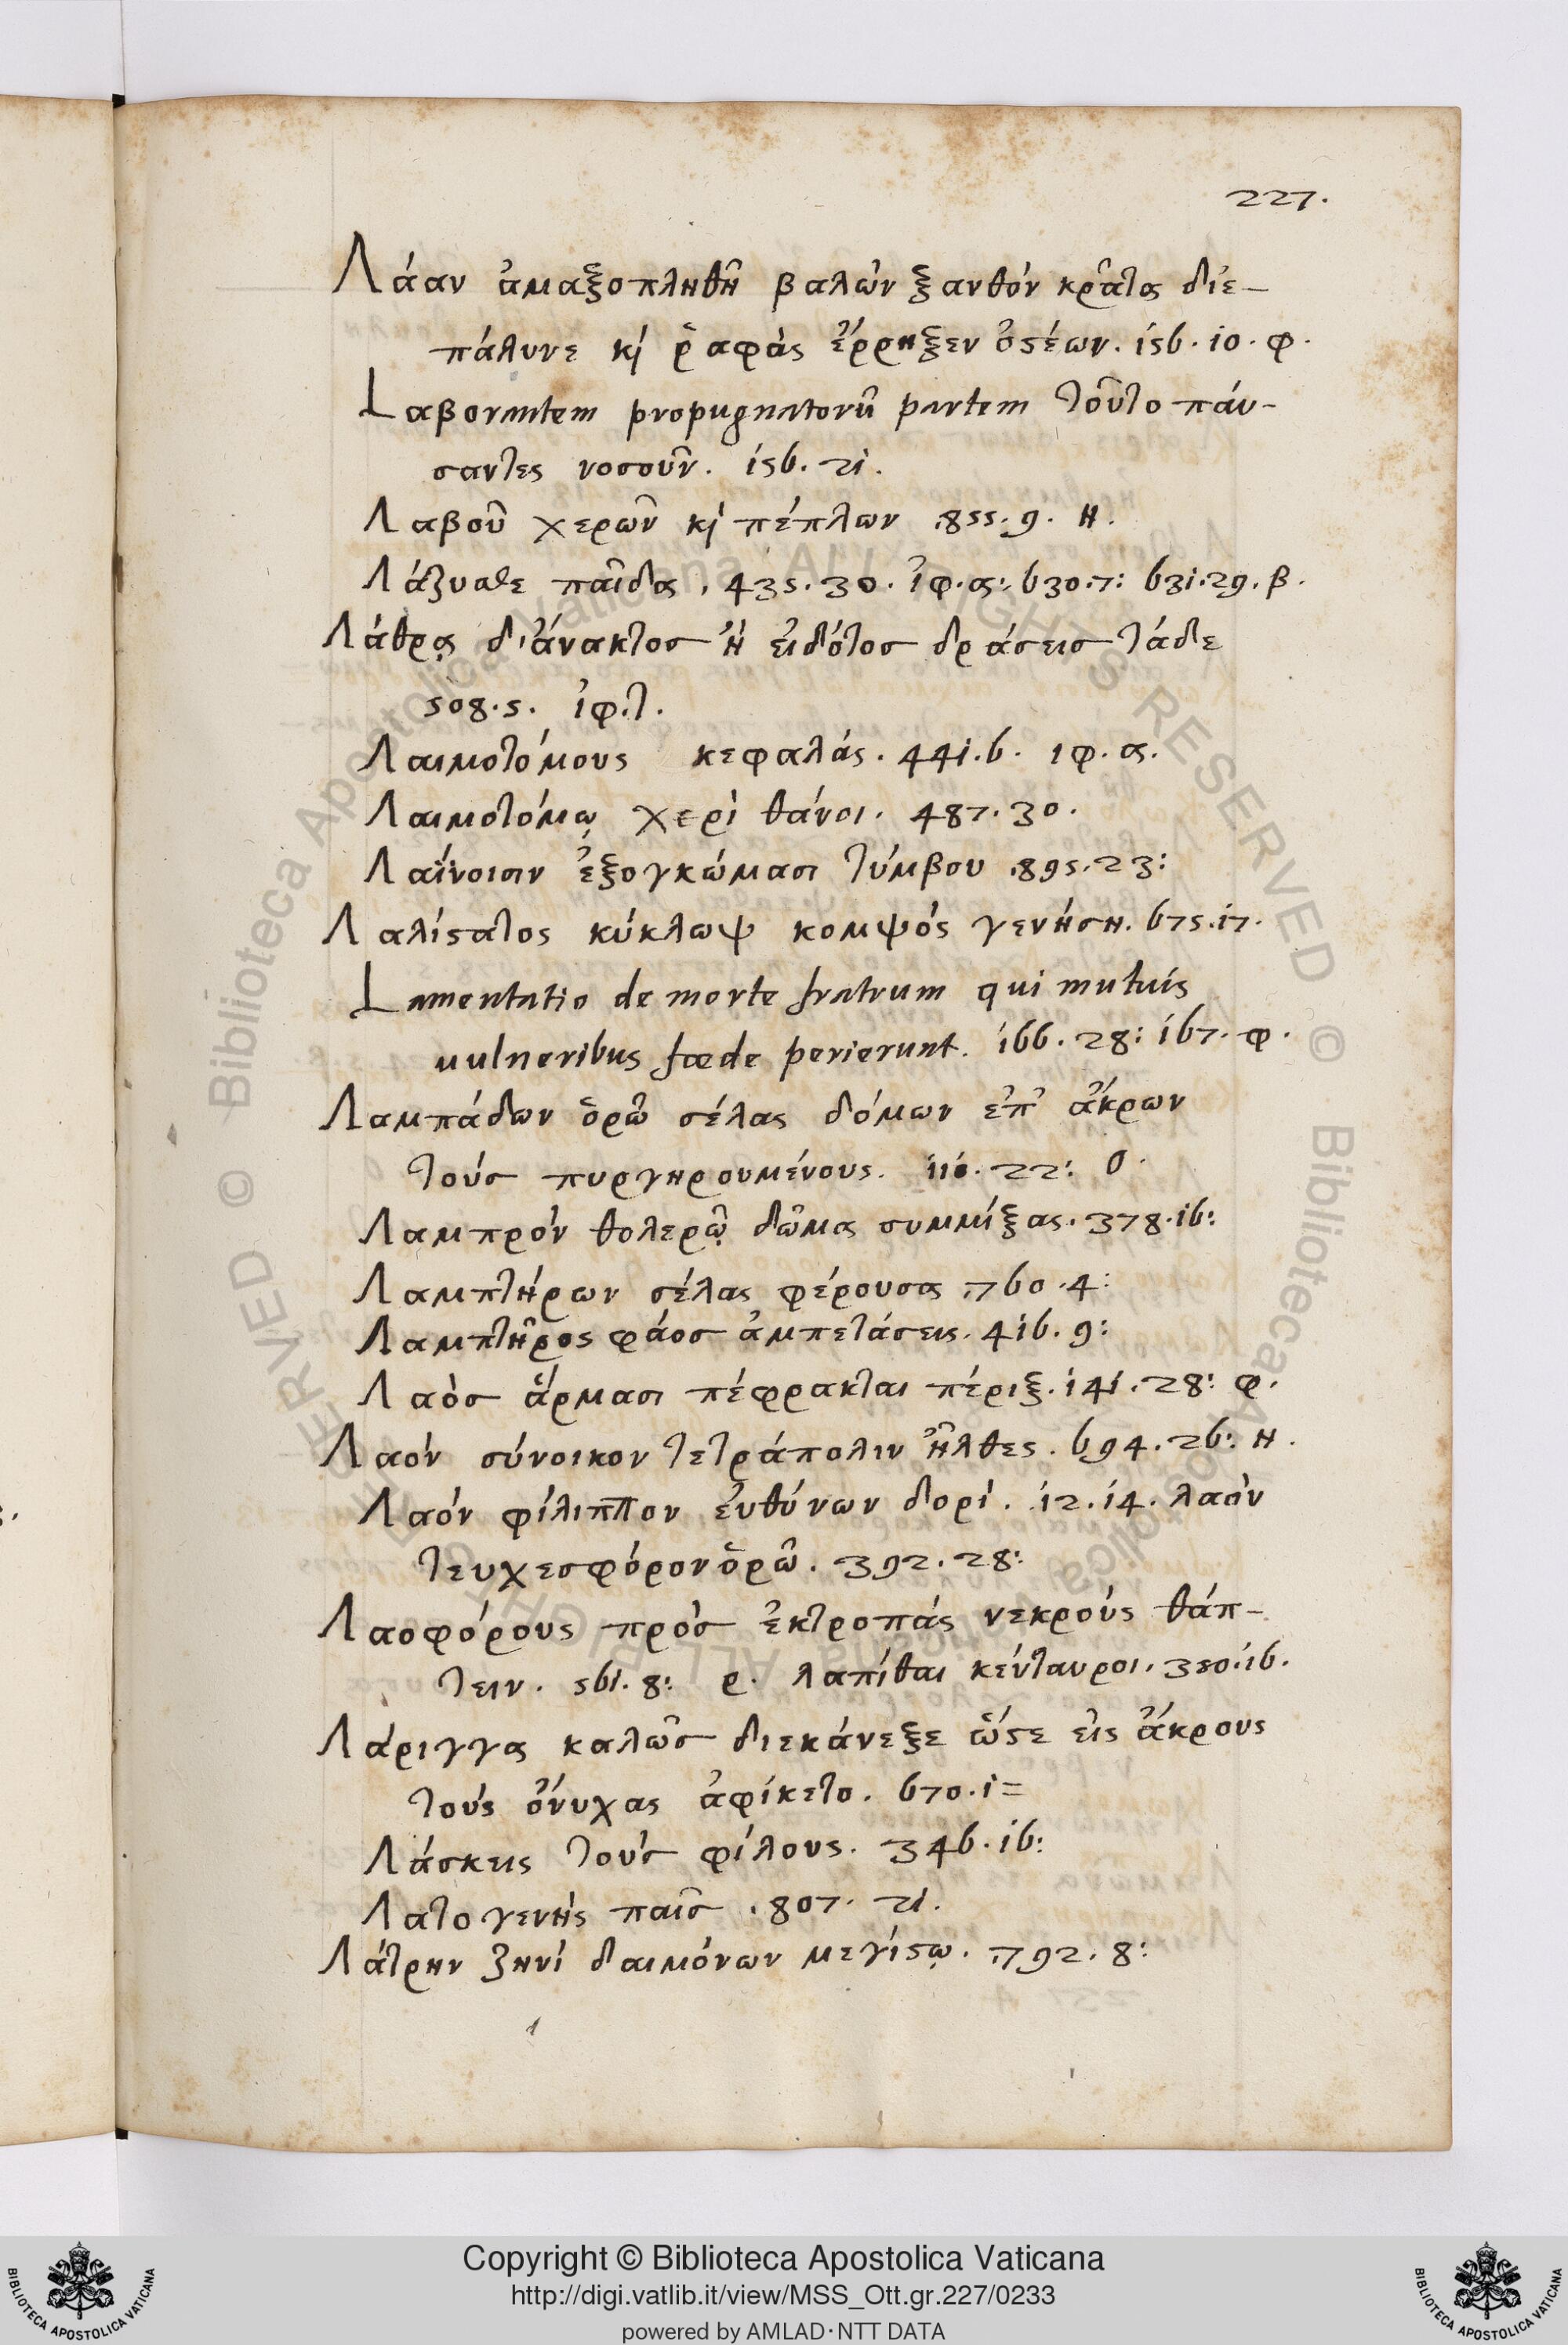 227.
Λάαν ἁμαξοπληθῆ βαλὼν ξανθὸν κρᾶτα διε-
πάλυνε κὶ ῥαφὰς ἔρρηξεν ὀϛέων. 156. 10. φ.
Laβorantem propugnatorũ partem τοῦτο παύ-
σαντες νοσοῦν. 156. 21.
Λαβοῦ χερῶν κὶ πέπλων .855. 9. н.
Λάζυσθε παῖδα. 435. 30. ἰφ. α: 630. 7: 631. 29. β.
Λάθρᾳ δ' ἄνακτος ἢ εἰδότος δράσεις τάδε
508. 5. ἰφ. τ.
Λαιμοτόμους κεφαλάς. 441. 6. ιφ. α.
Λαιμοτόμῳ χερὶ θάνοι. 487. 30.
Λαΐνοισιν ἐξογκώμασι τύμβου .895. 23:
Λαλίϛατος κύκλωψ κομψὸς γενήση. 675. 17.
Lamentatio de morte fratrum qui mutuis
uulneribus fœde perierunt. 166. 28: 167. φ.
Λαμπάδων ὁρῶ σέλας δόμων ἐπ' ἄκρων
τοὺς πυργηρουμένους. 110. 22: ο.
Λαμπρὸν θολερῷ δῶμα συμμίξας. 378. 16:
Λαμπτήρων σέλας φέρουσα .760. 4:
Λαμπτῆρος φάος ἀμπετάσεις. 416. 9:
Λαὸς ἅρμασι πέφρακται πέριξ. 141. 28: φ.
Λαὸν σύνοικον τετράπολιν ἦλθες. 694. 26: н.
Λαὸν φίλιππον εὐθύνων δορί. 12. 14. λαὸν
τευχεσφόρον ὁρῶ. 392. 28:
Λαοφόρους πρὸς ἐκτροπὰς νεκροὺς θάπ-
τειν. 561. 8: ρ. λαπίθαι κένταυροι. 380. 16.
Λάριγγα καλῶς διεκάνεξε ὥϛε εἰς ἄκρους
τοὺς ὄνυχας ἀφίκετο. 670. 1=
Λάσκεις τοὺς φίλους. 346. 16:
Λατογενὴς παῖς .807. 21.
Λάτρην ζηνὶ δαιμόνων μεγίϛῳ. .792. 8:
Copyright © Biblioteca Apostolica Vaticana
http://digi.vatlib.it/view/MSS_Ott.gr.227/0233
powered by AMLAD·NTT DATA